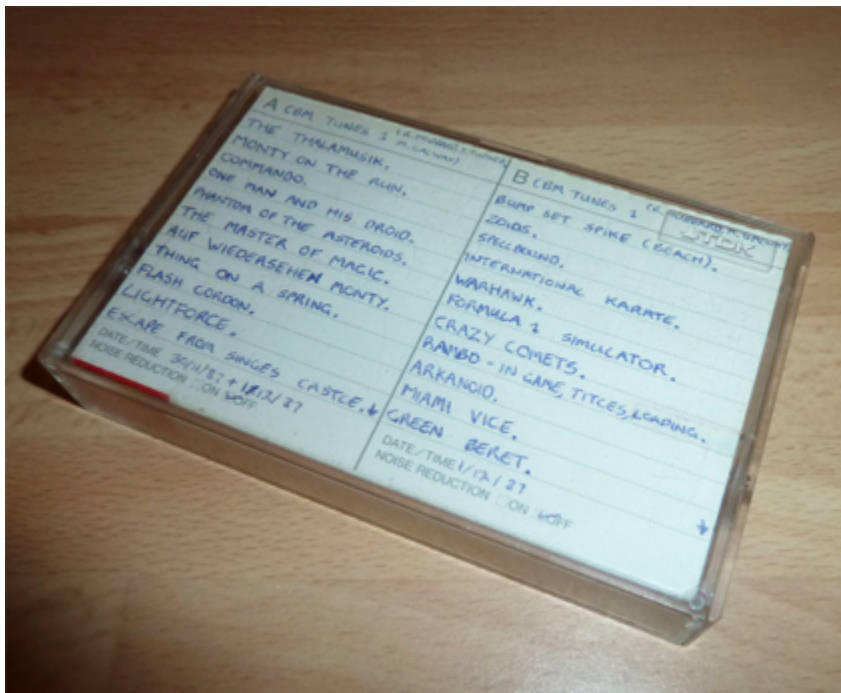 A CBM TUNES 1 (R. HUBBARD, S. TURNER,
M. GALWAY)
THE THALAMUSIK.
MONTY ON THE RUN.
COMMANDO.
ONE MAN AND HIS DROID.
PHANTOM OF THE ASTEROIDS.
THE MASTER OF MAGIC.
AUF WIEDERSEHEN MONTY.
THING ON A SPRING.
FLASH GORDON.
LIGHTFORCE.
ESCAPE FROM SINGES CASTLE. ↓
DATE/TIME 30/11/87 + 1/12/87
NOISE REDUCTION ON OFF
B CBM TUNES 1 (R. HUBBARD, M. GALWAY
TDK
BUMP SET SPIKE (BEACH).
ZOIDS.
SPELLBOUND.
INTERNATIONAL KARATE.
WARHAWK.
FORMULA 1 SIMULATOR.
CRAZY COMETS.
RAMBO - IN GAME, TITLES, LOADING.
ARKANOID.
MIAMI VICE.
GREEN BERET.
DATE/TIME 1/12/87
NOISE REDUCTION ON OFF
↓